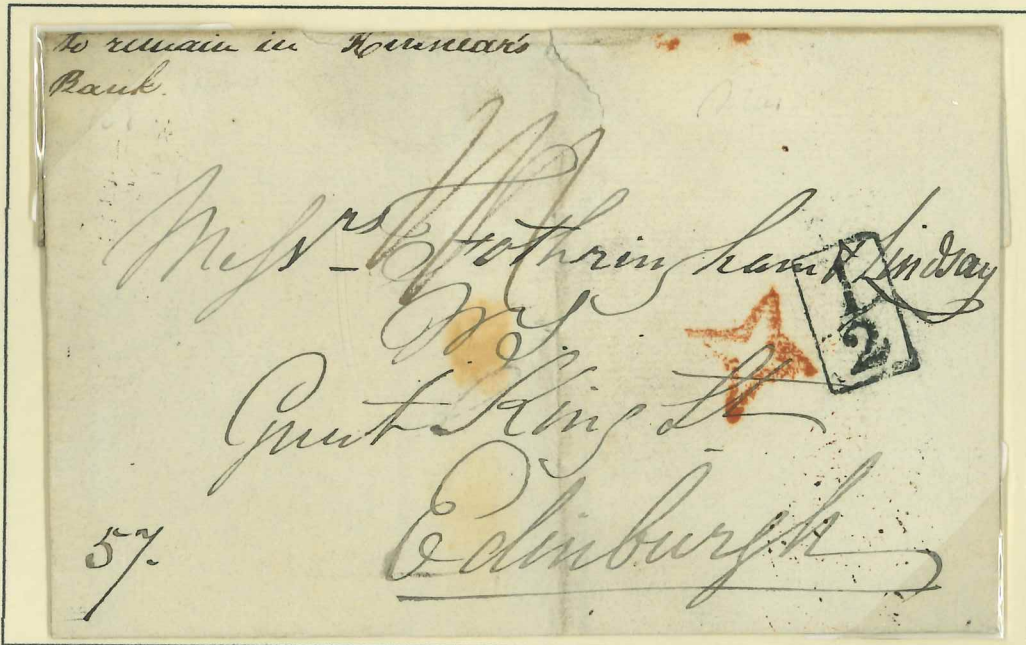 to remain in Kinnear's
Bank.
Messrs Fothringham & Lindsay
WS
Great King St
Edinburgh
57.
1/2